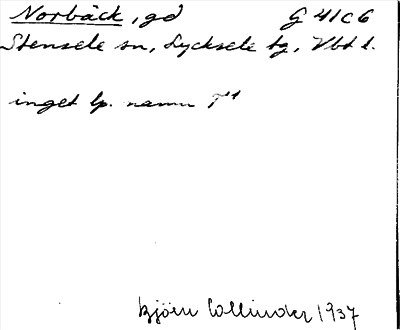 Norbäck, gd G 41 C 6
Stensele sn, Lycksele tg, Vbt l.
inget lp. namn
Björn Collinder 1937